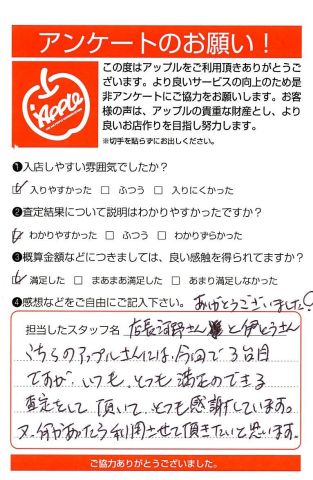 アンケートのお願い！
Apple
この度はアップルをご利用頂きありがとうご
ざいます。より良いサービスの向上のため是
非アンケートにご協力をお願いします。お客
様の声は、アップルの貴重な財産とし、より
良いお店作りを目指し努力します。
※切手を貼らずにお出しください。
❶入店しやすい雰囲気でしたか？
☑ 入りやすかった □ ふつう □ 入りにくかった
❷査定結果について説明はわかりやすかったですか？
☑ わかりやすかった □ ふつう □ わかりずらかった
❸概算金額などにつきましては、良い感触を得られてますか？
☑ 満足した □ まあまあ満足した □ あまり満足しなかった
❹感想などをご自由にご記入下さい。 ありがとうございました！
担当したスタッフ名 店長河野さんと伊とうさん
こちらのアップルさんには、今回で3台目
ですが、いつも、とても満足のできる
査定をして頂いて、とても感謝しています。
又、何かあったら利用させて頂きたいと思います。
ご協力ありがとうございました。